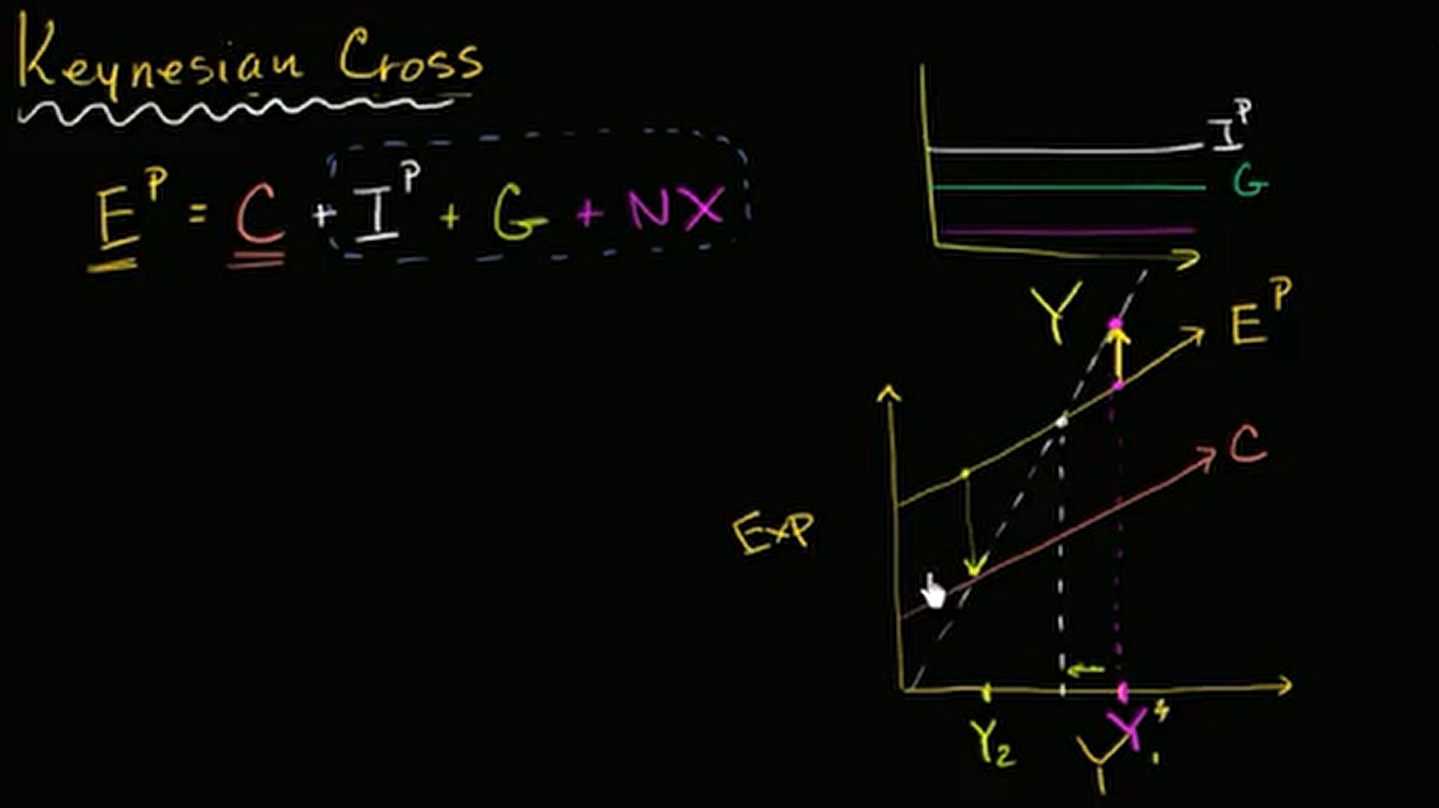 Keynesian Cross
E^P = C + I^P + G + NX
I^P
G
Y
E^P
C
Exp
Y₂
Y
Y₁